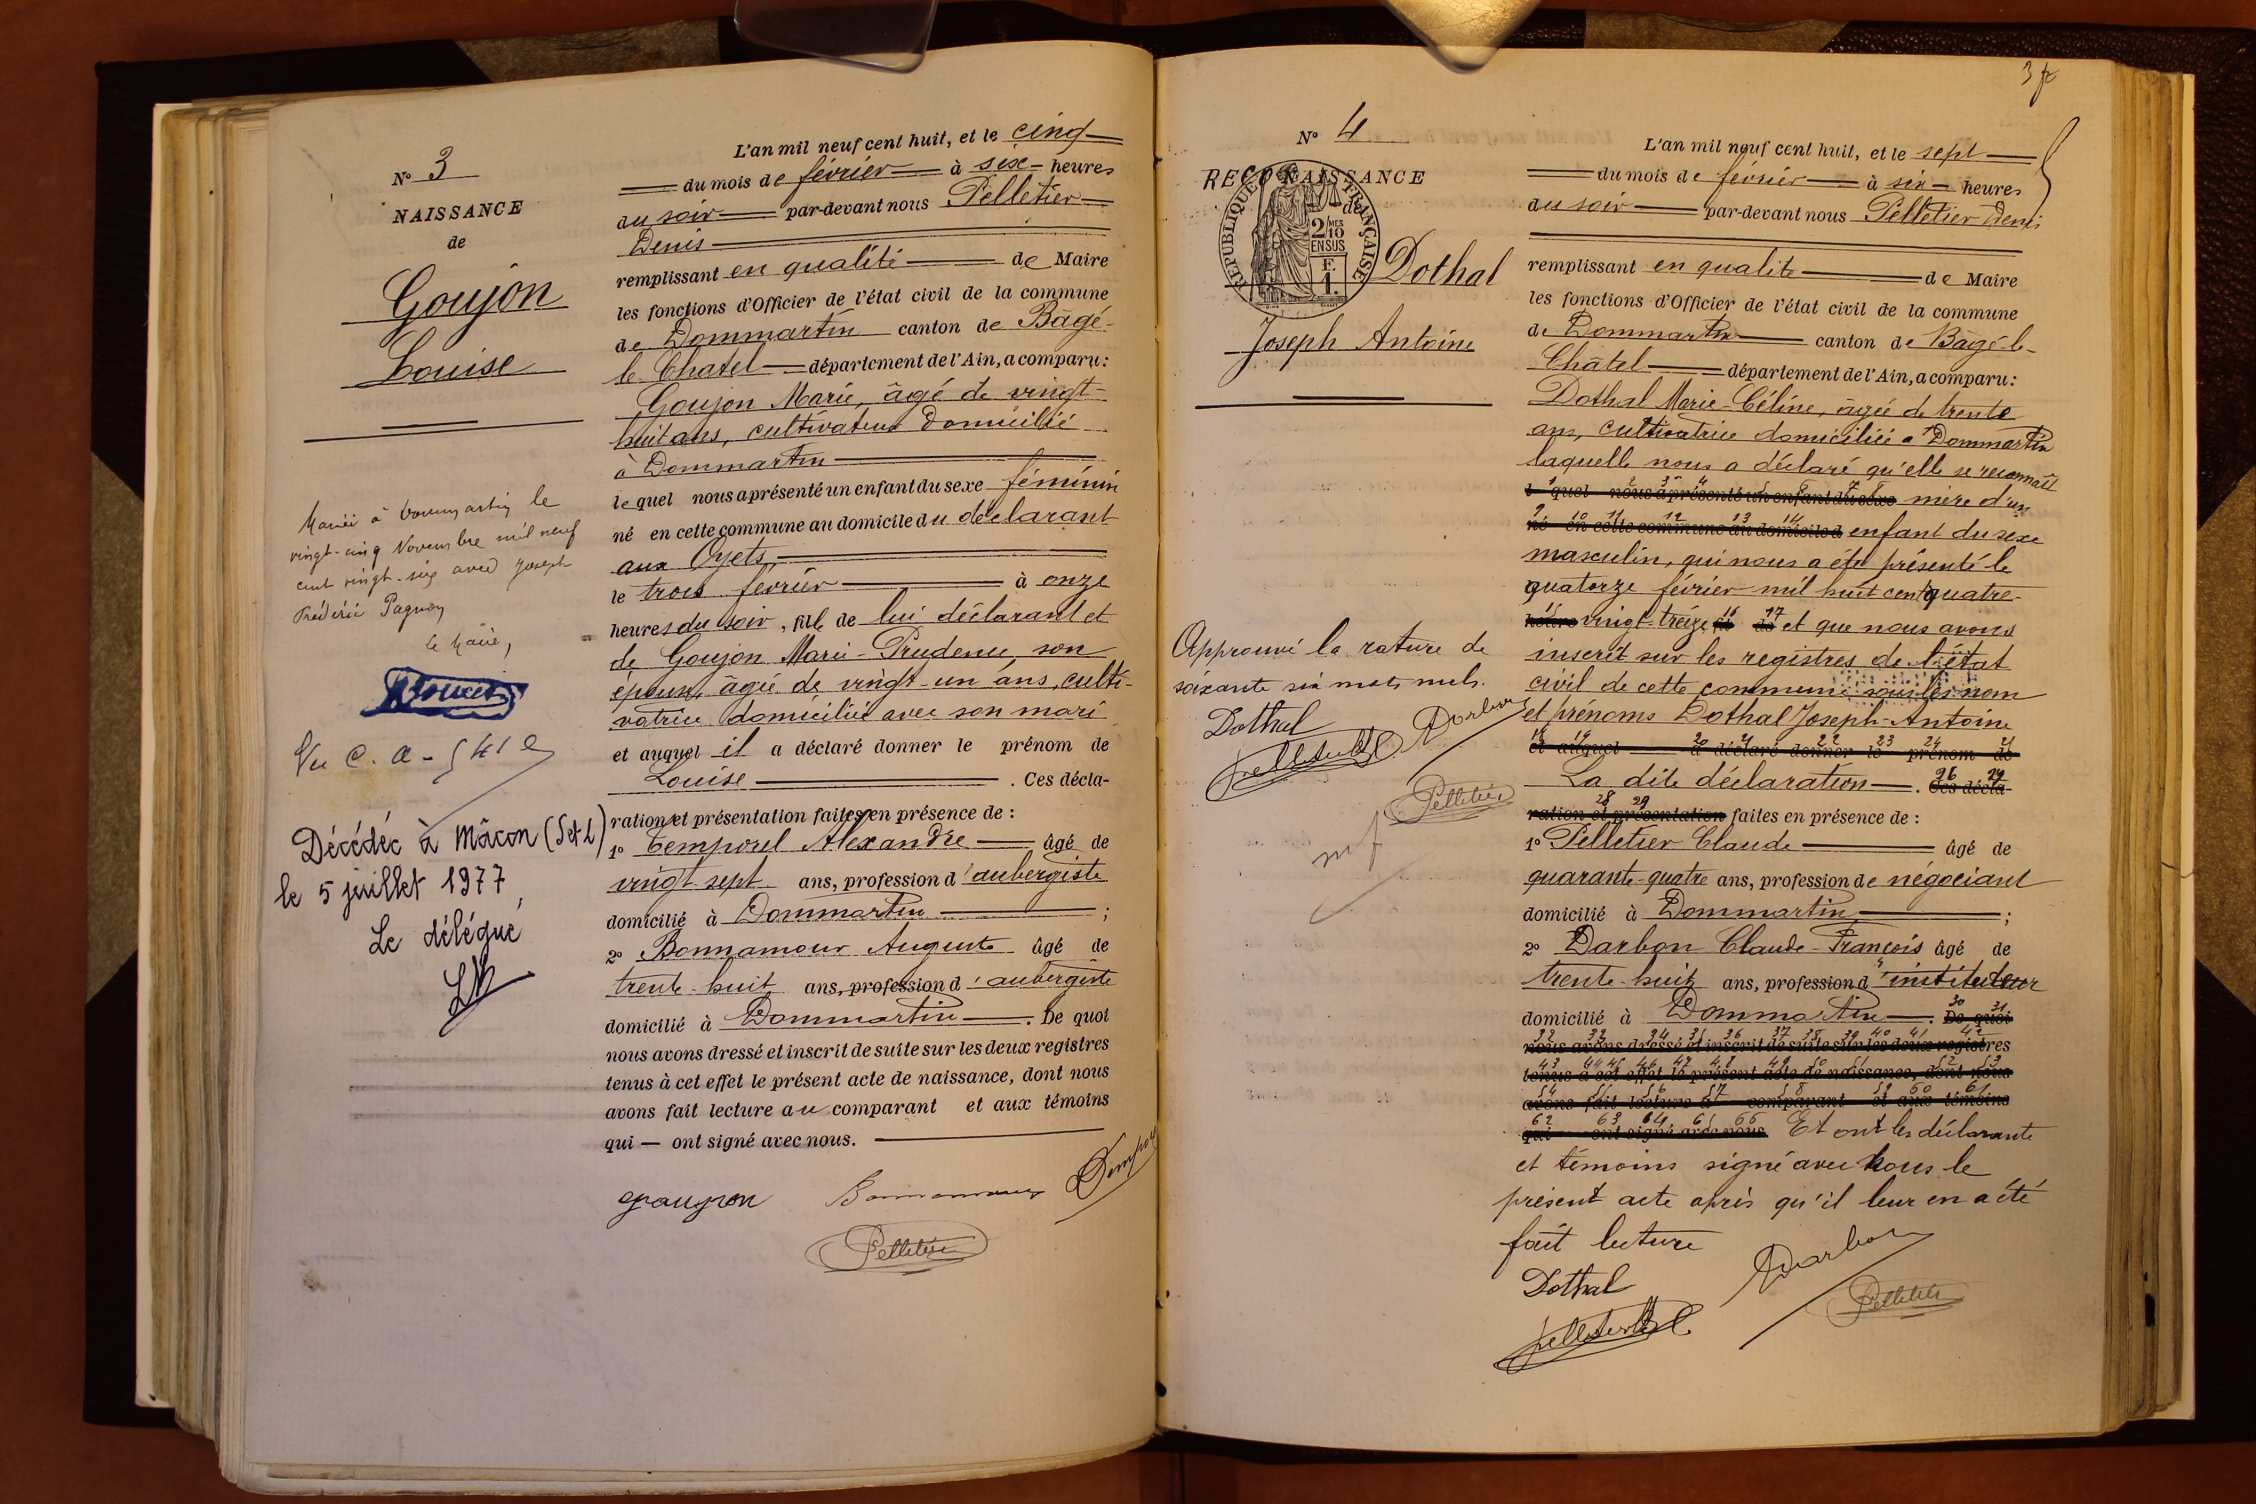 N° 3
NAISSANCE
de
Goujon
Louise
Mariée à Dommartin le
vingt-cinq Novembre mil neuf
cent vingt-six avec Joseph
Frédéric Pagnon
Le Maire,
Vu C. a -
Décédée à Mâcon (S et L)
le 5 juillet 1977
Le délégué
L'an mil neuf cent huit, et le cinq
du mois de février à six heures
du soir par-devant nous Pelletier
Denis
remplissant en qualité de Maire
les fonctions d'Officier de l'état civil de la commune
de Dommartin canton de Bâgé-
le Chatel département de l'Ain, a comparu :
Goujon Marie, âgé de vingt-
huit ans, cultivateur domicilié
à Dommartin
lequel nous a présenté un enfant du sexe féminin
né en cette commune au domicile du déclarant
aux Oyets
le trois février à onze
heures du soir, fille de lui déclarant et
de Goujon Marie-Prudence, son
épouse, âgée de vingt-un ans, culti-
vatrice domiciliée avec son mari
et auquel il a déclaré donner le prénom de
Louise . Ces décla-
ration et présentation faites en présence de :
1° Temporel Alexandre âgé de
vingt-sept ans, profession d'aubergiste
domicilié à Dommartin ;
2° Bonnamour Auguste âgé de
trente-huit ans, profession d'aubergiste
domicilié à Dommartin . De quoi
nous avons dressé et inscrit de suite sur les deux registres
tenus à cet effet le présent acte de naissance, dont nous
avons fait lecture au comparant et aux témoins
qui — ont signé avec nous.
goujon Bonnamour
Pelletier
3 f
N° 4
RECONNAISSANCE
de
RÉPUBLIQUE FRANÇAISE
2/10MES
EN SUS
F.
1.
Dothal
Joseph Antoine
Approuvé la rature de
soixante six mots nuls.
Dothal Darbon
Pelletier Cl
Pelletier
L'an mil neuf cent huit, et le sept
du mois de février à six heures
du soir par-devant nous Pelletier Denis
remplissant en qualité de Maire
les fonctions d'Officier de l'état civil de la commune
de Dommartin canton de Bâgé-le-
Châtel département de l'Ain, a comparu :
Dothal Marie-Céline, âgée de trente
ans, cultivatrice domiciliée à Dommartin
laquelle nous a déclaré qu'elle se reconnaît
l quel nous a présenté un enfant du sexe mère d'un
né en cette commune au domicile d enfant du sexe
masculin, qui nous a été présenté le
quatorze février mil huit cent quatre-
heure vingt-treize fil de et que nous avons
inscrit sur les registres de l'état
civil de cette commune sous les nom
et prénoms Dothal Joseph-Antoine
et auquel a déclaré donner le prénom de
La dite déclaration . Ces décla-
ration et présentation faites en présence de :
1° Pelletier Claude âgé de
quarante-quatre ans, profession de négociant
domicilié à Dommartin ;
2° Darbon Claude-François âgé de
trente-huit ans, profession d'instituteur
domicilié à Dommartin . De quoi
nous avons dressé et inscrit de suite sur les deux registres
tenus à cet effet le présent acte de naissance, dont nous
avons fait lecture a comparant et aux témoins
qui ont signé avec nous. Et ont les déclarante
et témoins signé avec nous le
présent acte après qu'il leur en a été
fait lecture
Dothal Darbon
Pelletier Cl
Pelletier